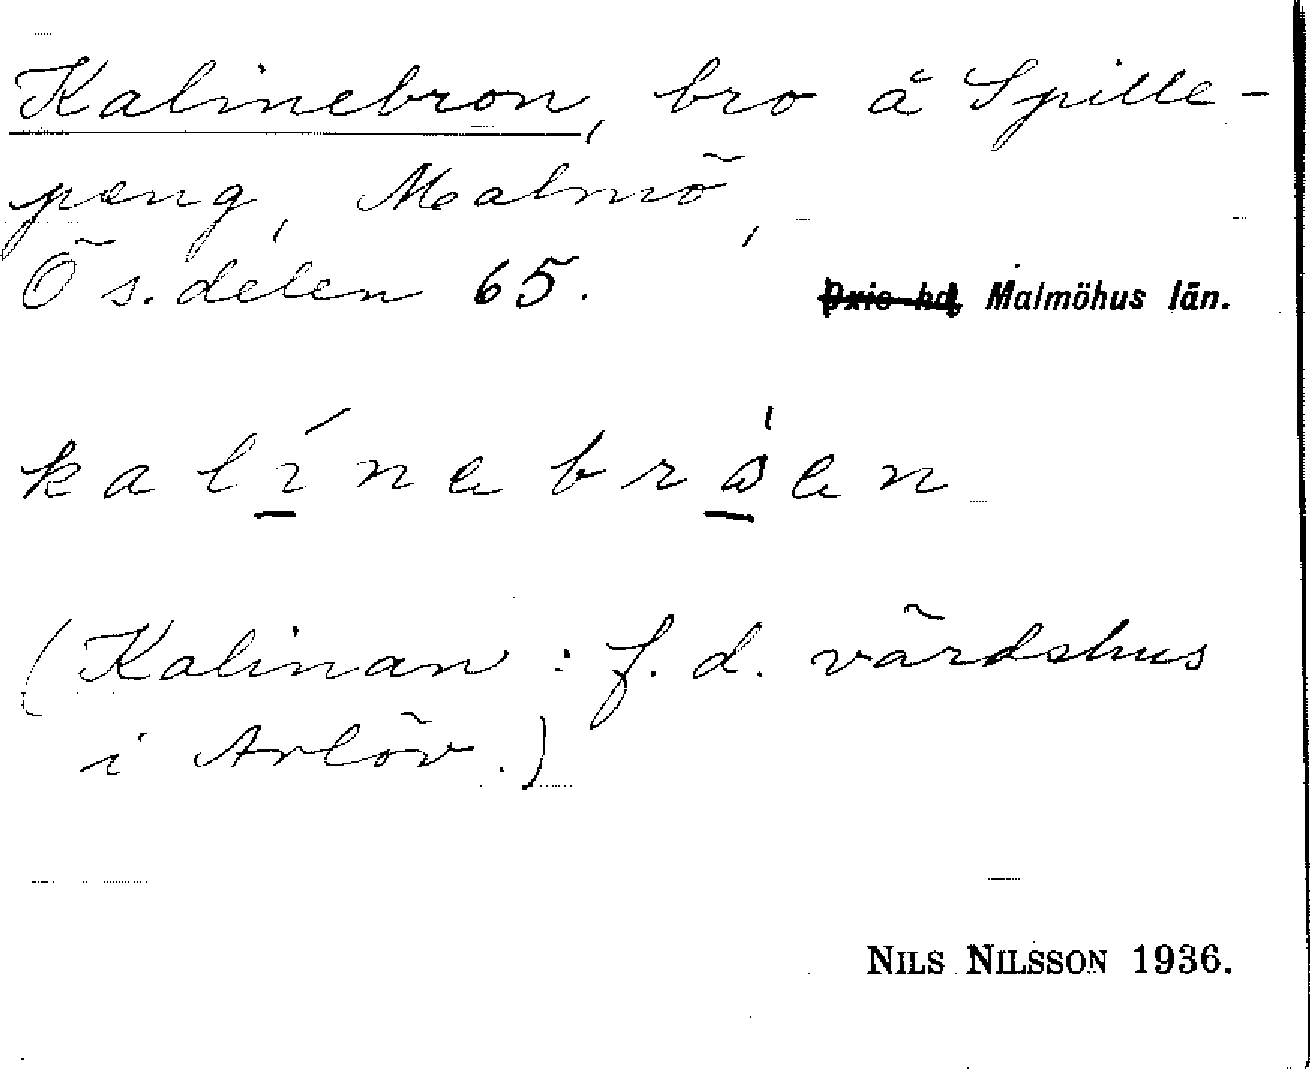 Kalinebron, bro å Spille-
peng, Malmö,
Ö s. delen 65.
Oxie hd Malmöhus län.
kalínebråen
(Kalinan: f. d. värdshus
i Arlöv.)
NILS NILSSON 1936.